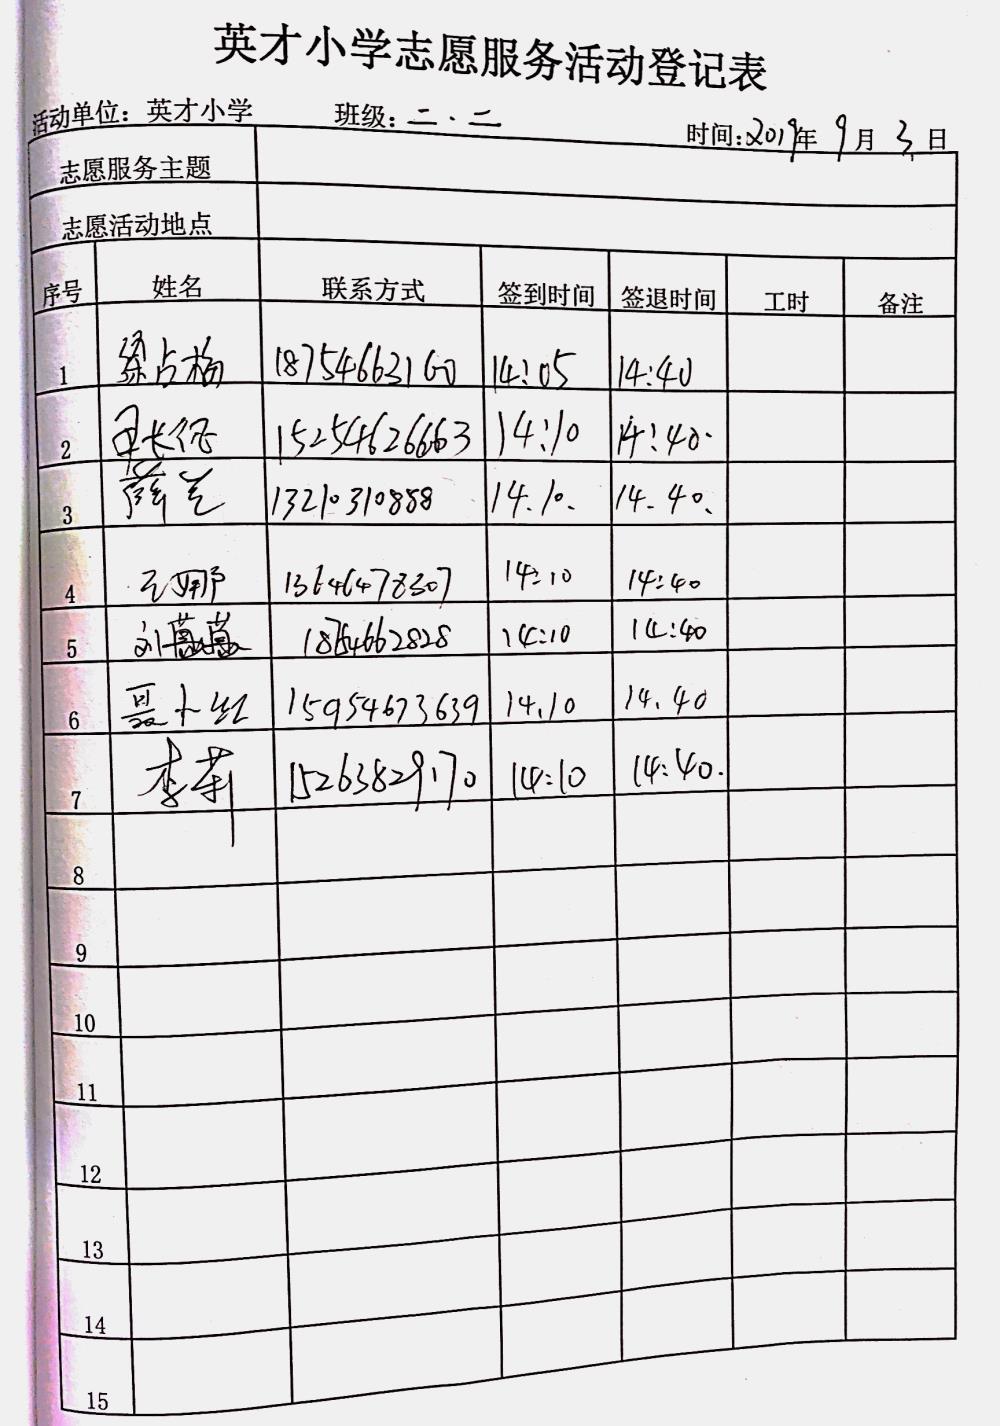 英才小学志愿服务活动登记表
活动单位：英才小学 班级：二.二 时间:2019年 9月 3日
志愿服务主题
志愿活动地点
序号 姓名 联系方式 签到时间 签退时间 工时 备注
1 占梅 18754663160 14:05 14:40
2 长征 15254626663 14:10 14:40.
3 薛芝 13210310888 14.10. 14.40.
4 王娜 13646478307 14:10 14:40
5 刘薇薇 18764662828 14:10 14:40
6 聂小红 15954673639 14.10 14.40
7 李莉 15263829170 14:10 14:40.
8
9
10
11
12
13
14
15